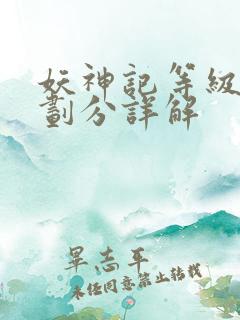 妖神記等級
劃分詳解
畢志平
未經同意禁止轉載